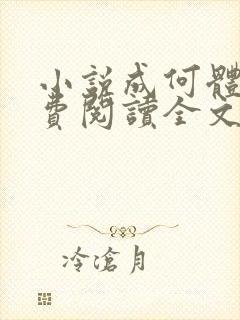 小説成何體
費閱讀全文
冷滄月